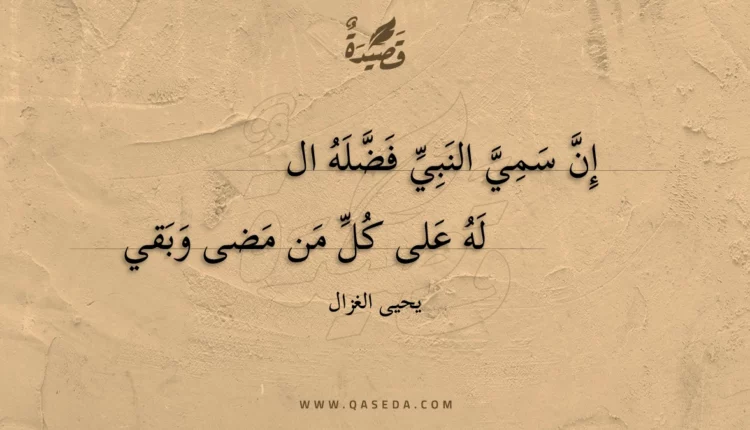 قَصِيْدَةٌ
إِنَّ سَمِيَّ النَبِيِّ فَضَّلَهُ ال
لَهُ عَلى كُلِّ مَن مَضى وَبَقي
يحيى الغزال
WWW.QASEDA.COM